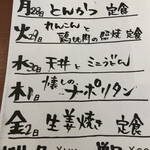 月28日 とんかつ 定食
火29日 れんこんと鶏肉の照焼 定食
水30日 天丼とミニうどん
木1日 懐しのナポリタン
金2日 生姜焼き 定食